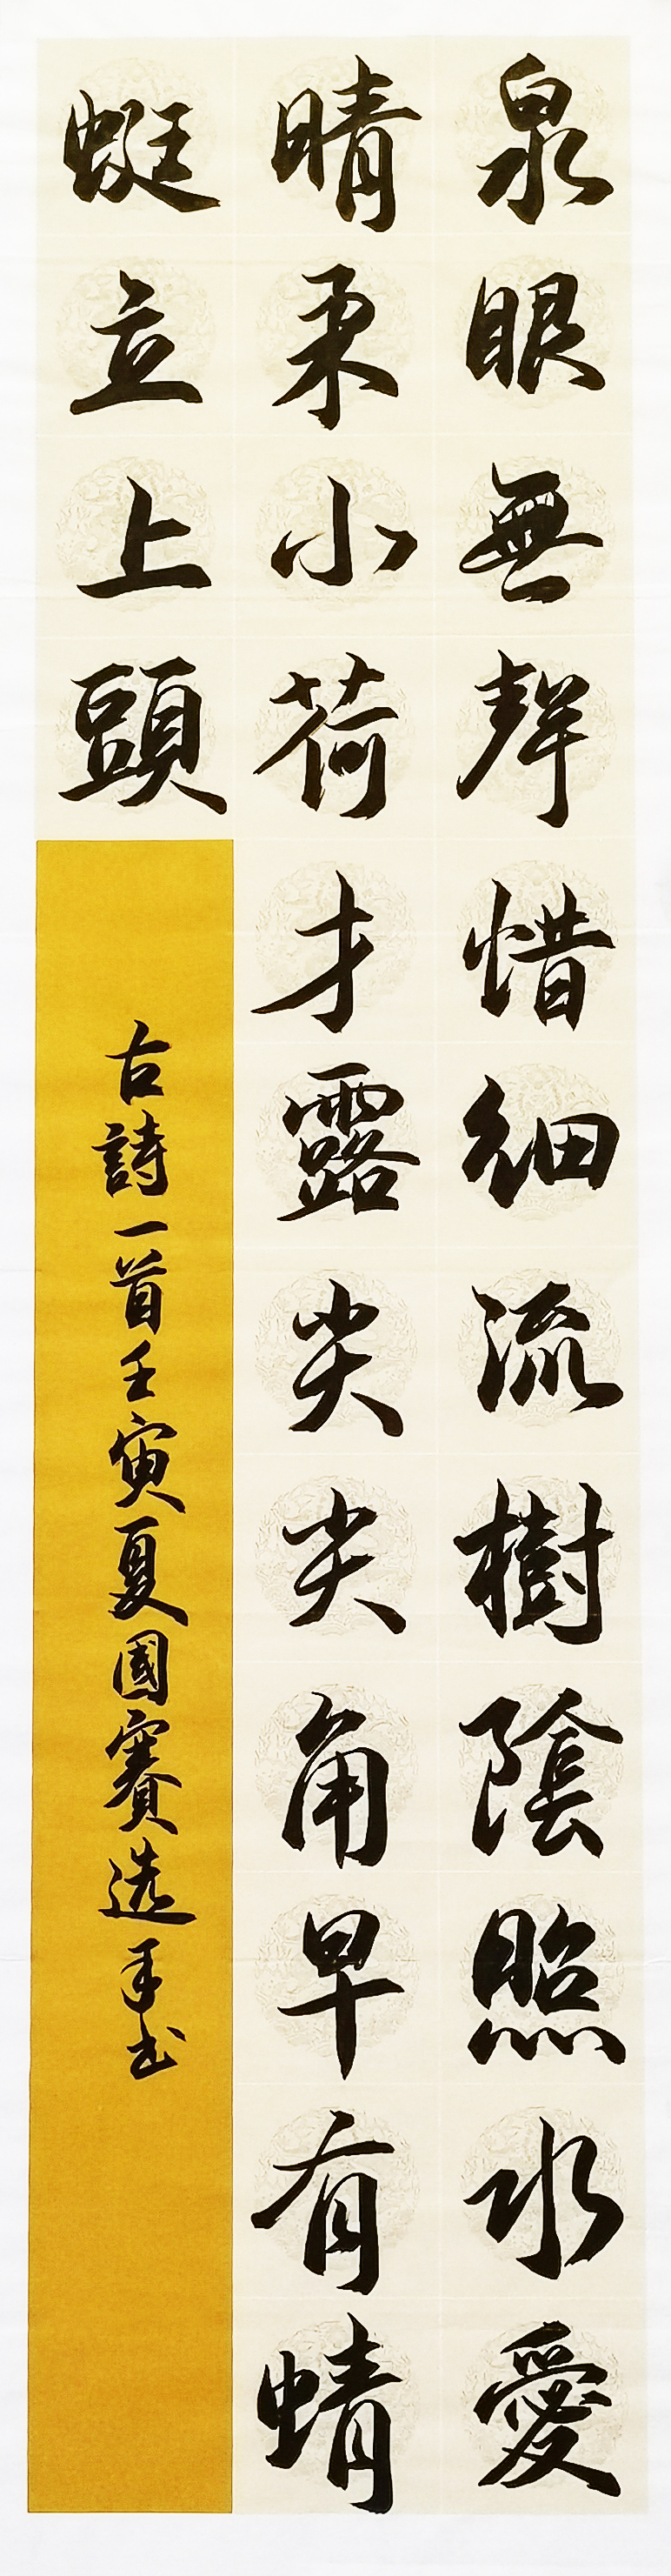 泉眼無聲惜細流樹陰照水愛
晴柔小荷才露尖尖角早有蜻
蜓立上頭
古詩一首壬寅夏國賽選手書